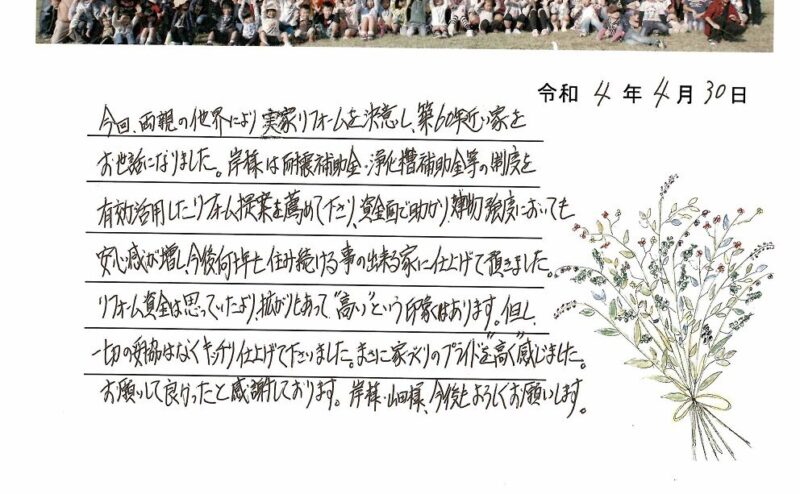 令和 4 年 4 月 30 日
今回、両親の他界により実家リフォームを決意し、築60年近い家を
お世話になりました。岸様は耐震補助金・浄化槽補助金等の制度を
有効活用したリフォーム提案を薦めて下さり、資金面で助かり、建物強度においても
安心感が増し、今後何十年も住み続ける事の出来る家に仕上げて頂きました。
リフォーム資金は思っていたより、拡がりもあって"高い"という印象はあります。但し、
一切の妥協はなくキッチリ仕上げて下さいました。まさに家づくりのプライドを"高く"感じました。
お願いして良かったと感謝しております。岸様・山田様、今後ともよろしくお願いします。